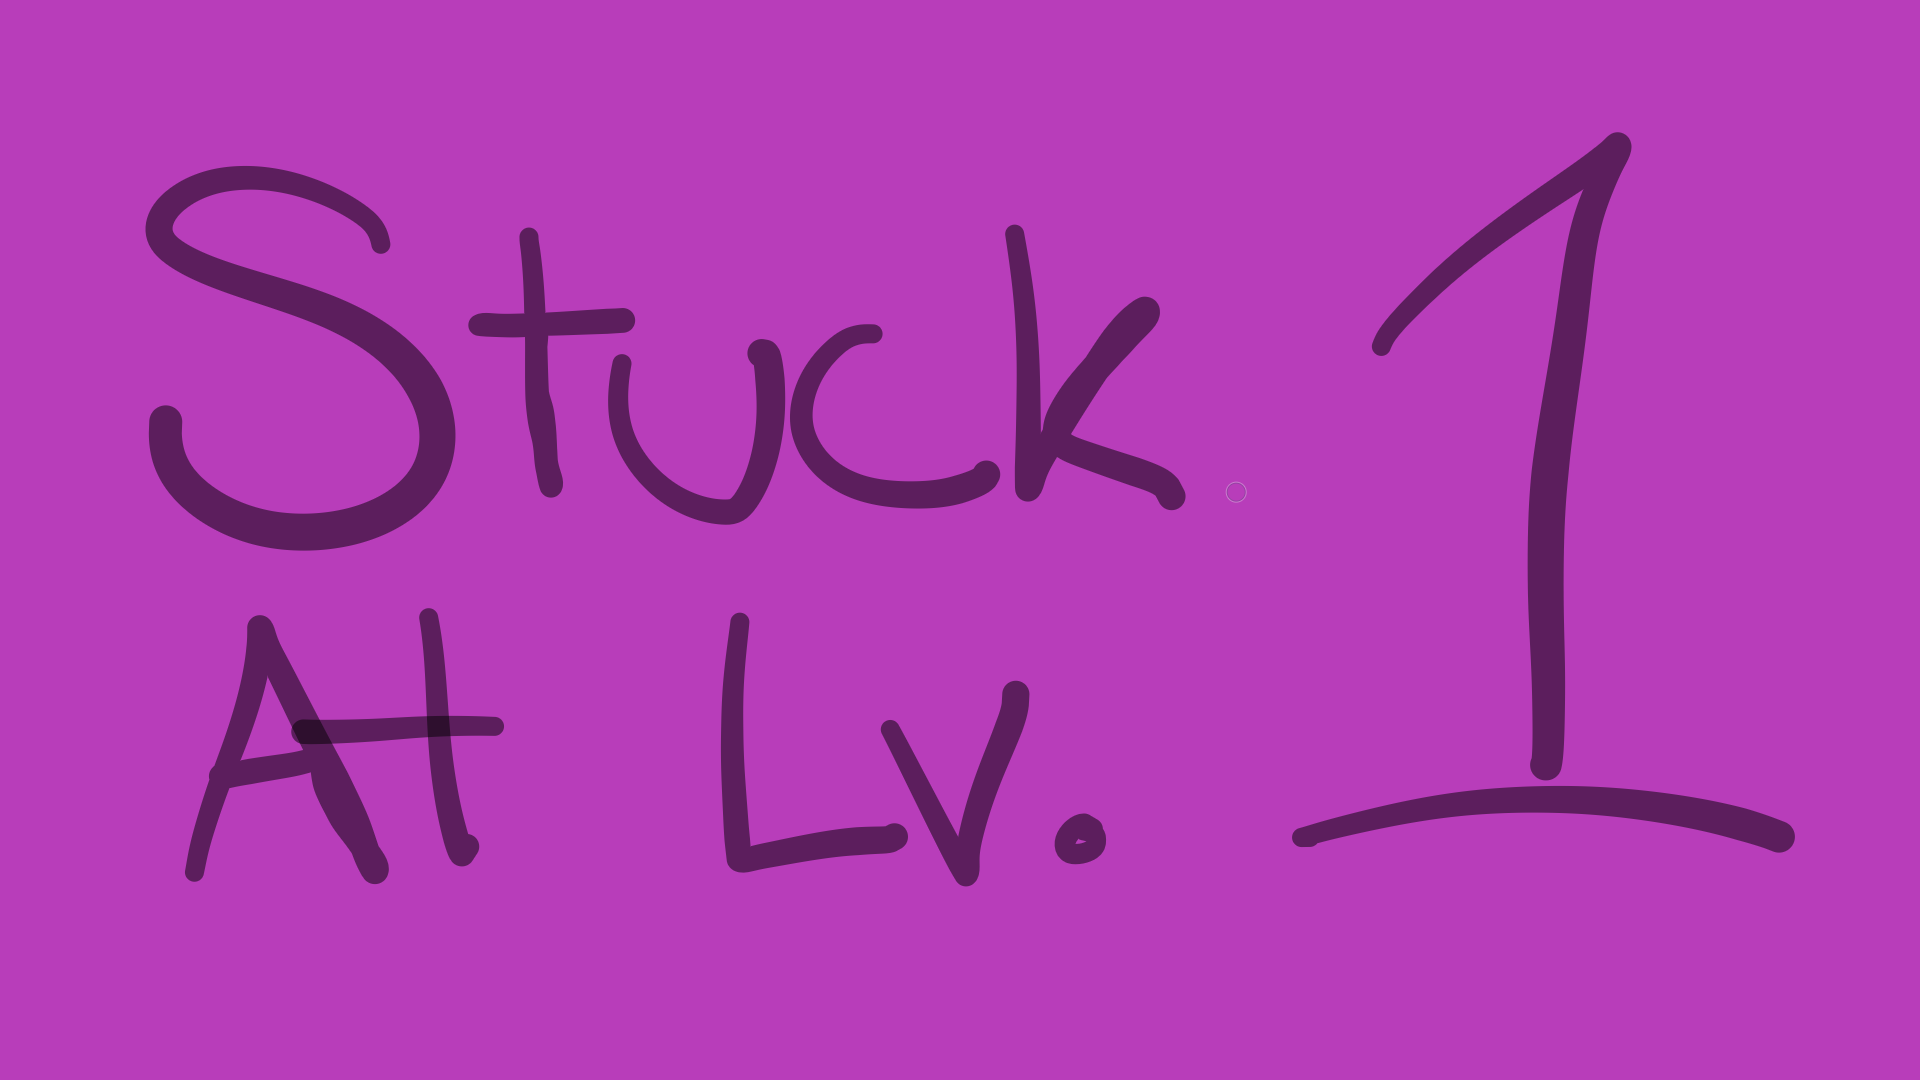 Stuck
At Lv. 1